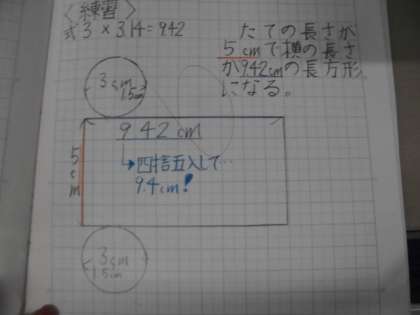 〈練習〉
式 3×3.14=9.42
たての長さが
5cmで横の長さ
が9.42cmの長方形
になる。
3cm
1.5cm
9.42cm
5cm
→四捨五入して…
9.4cm!
3cm
1.5cm